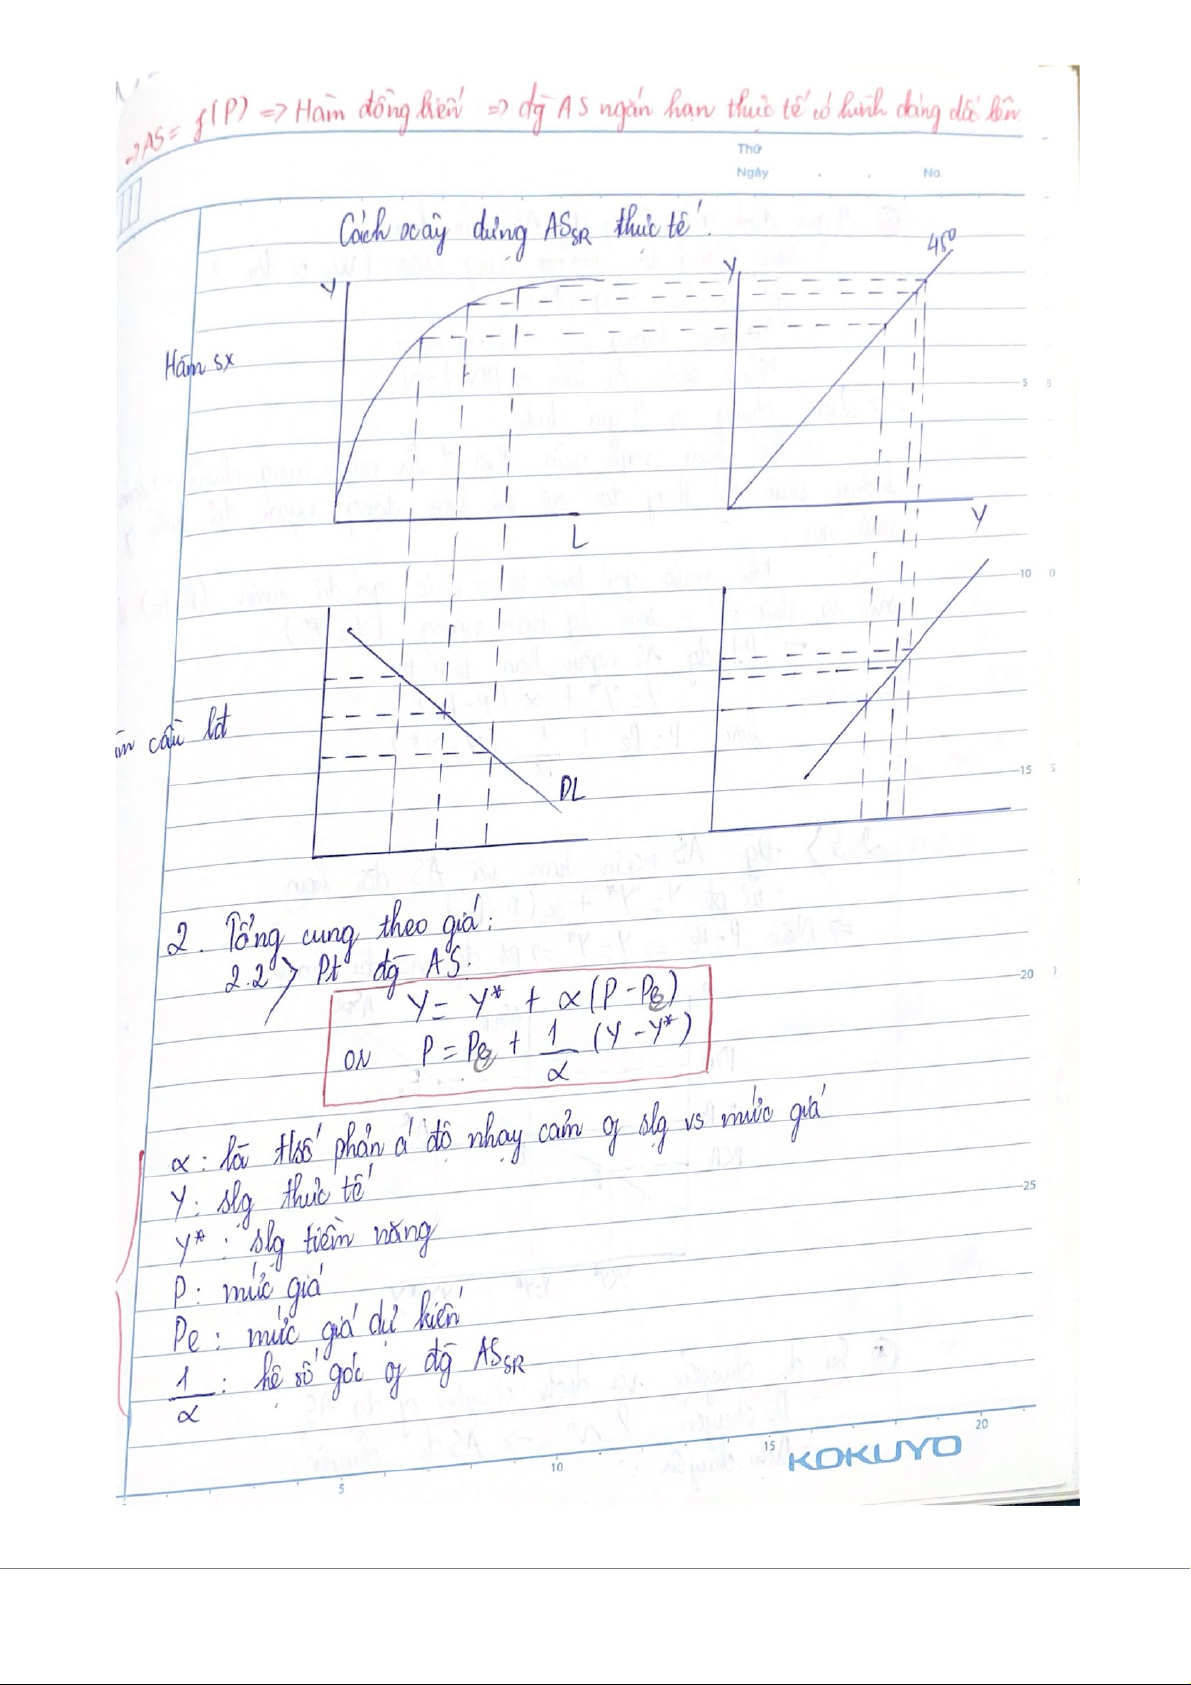 → AS = f(P) => Hàm đồng biến => đg AS ngắn hạn thực tế có hình dáng dốc lên
Thứ
Ngày . . No
Cách xây dựng ASSR thực tế.
Y
Y
45°
Hàm sx
5
L
Y
10
cầu lđ
DL
15
2. Tổng cung theo giá:
2.2> Pt đg AS.
20
Y = Y* + α(P - Pe)
or P = Pe + 1/α (Y - Y*)
α: là tsố phản á độ nhạy cảm of slg vs mức giá
Y: slg thực tế
25
Y*: slg tiềm năng
P: mức giá
Pe: mức giá dự kiến
1/α: hệ số góc of đg ASSR
5 10 15 20
KOKUYO